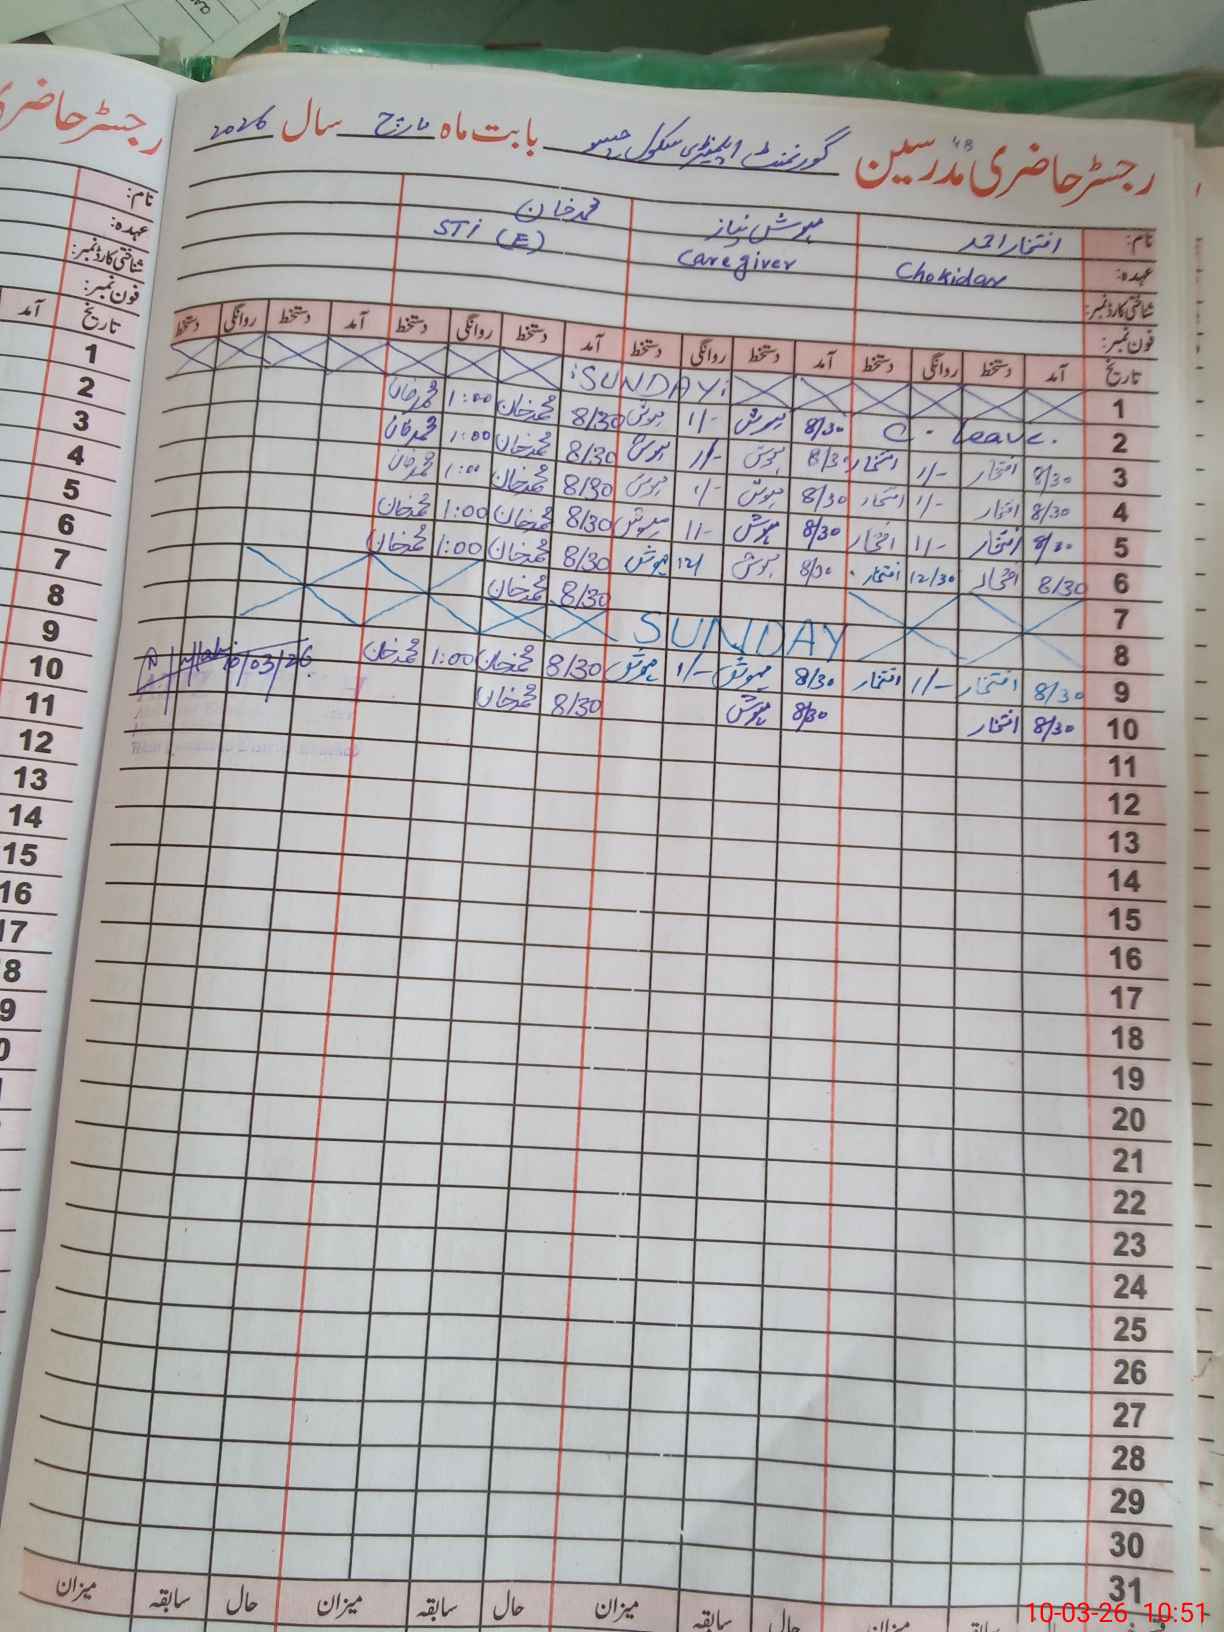 رجسٹر حاضری مدرسین گورنمنٹ ایلیمنٹری سکول بابت ماہ مارچ سال 2026
نام: افتخار احمد مہوش نیاز محمد خان
عہدہ: Chokidar Caregiver STi (E)
شناختی کارڈ نمبر:
فون نمبر:
تاریخ آمد دستخط روانگی دستخط آمد دستخط روانگی دستخط آمد دستخط روانگی دستخط آمد دستخط روانگی دستخط
1 SUNDAY
2 C. Leave. 8/30 مہوش 1/- مہوش 8/30 محمد خان 1:00 محمد خان
3 8/30 افتخار 1/- افتخار 8/30 مہوش 1/- مہوش 8/30 محمد خان 1:00 محمد خان
4 8/30 افتخار 1/- افتخار 8/30 مہوش 1/- مہوش 8/30 محمد خان 1:00 محمد خان
5 8/30 افتخار 1/- افتخار 8/30 مہوش 1/- مہوش 8/30 محمد خان 1:00 محمد خان
6 8/30 افتخار 12/30 افتخار 8/30 مہوش 12/ مہوش 8/30 محمد خان 1:00 محمد خان
7 8/30 محمد خان
8 SUNDAY
9 8/30 افتخار 1/- افتخار 8/30 مہوش 1/- مہوش 8/30 محمد خان 1:00 محمد خان
10 8/30 افتخار 8/30 مہوش 8/30 محمد خان 10/03/26
11
12
13
14
15
16
17
18
19
20
21
22
23
24
25
26
27
28
29
30
31
حال سابقہ میزان حال سابقہ میزان حال سابقہ میزان
10-03-26 10:51
رجسٹر حاضری
نام:
عہدہ:
شناختی کارڈ نمبر:
فون نمبر:
تاریخ آمد
1
2
3
4
5
6
7
8
9
10
11
12
13
14
15
16
17
8
9
0